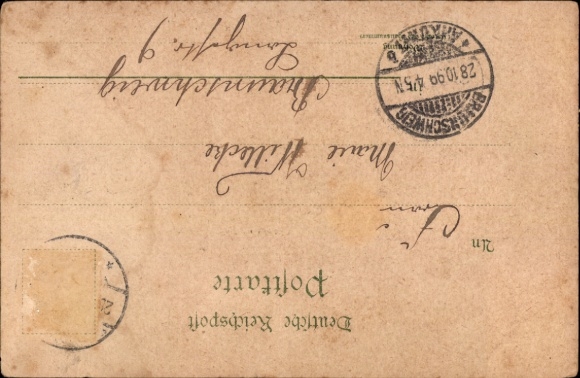 Deutsche Reichspost
Postkarte
An
Frau
Marie Willecke
Braunschweig
Langestr. 9
BRAUNSCHWEIG
28.10.99 4-5N
* ANKUNFT * b